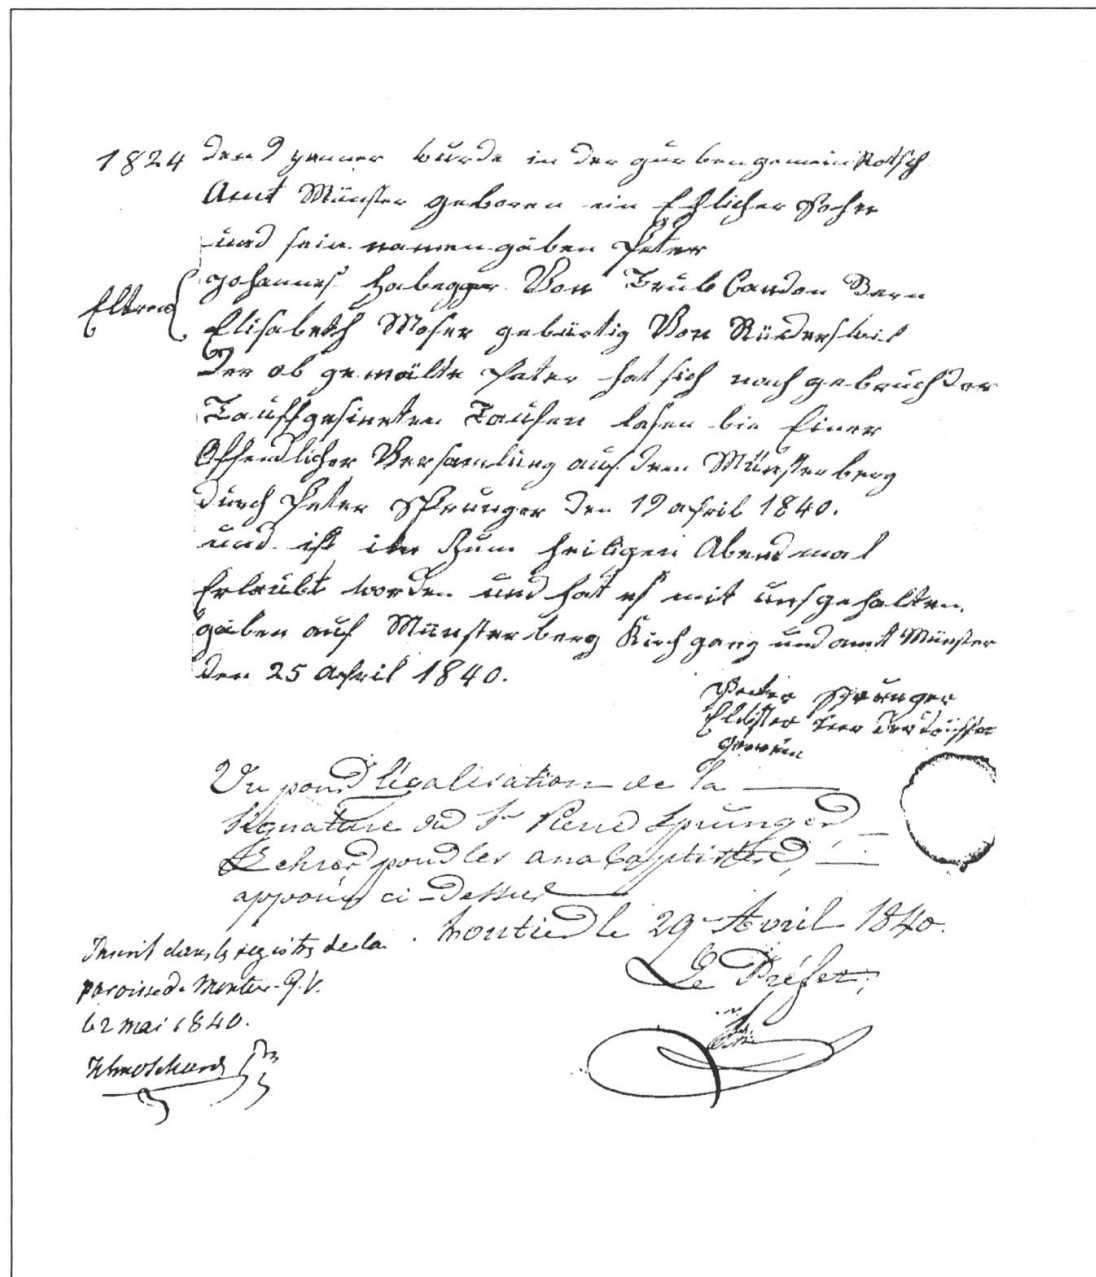 1824 den 9 jenner wurde in der gurben gemein Rotsch
Amt Münster geboren ein Ehlicher Sohn
und sein namen gäben Peter
Eltren { Johannes Habegger Von Trub Candon Bern
Elisabeth Moser gebürtig Von Rüderswil
Der ob gemälte Peter hat sich nach gebruch der
Tauffgesineten Taufen lasen bin Einer
Offendlicher Versamlung auf dem Münsterberg
durch Peter Sprunger den 19 april 1840.
und ist im zum heiligen Abendmal
Erlaubt worden und hat es mit uns gehalten.
gäben auf Münsterberg Kirchgang und amt Münster
den 25 april 1840.
Peter Sprunger
Eltister der
gemein
Vu pour légalisation de la
signature du Sr Pierre Sprunger
Lehrer pour les anabaptistes,
apposée ci-dessus
Moutier le 29 Avril 1840.
Le Préfet,
Inscrit dans les registres de la
paroisse de Moutier G. V.
le 2 mai 1840.